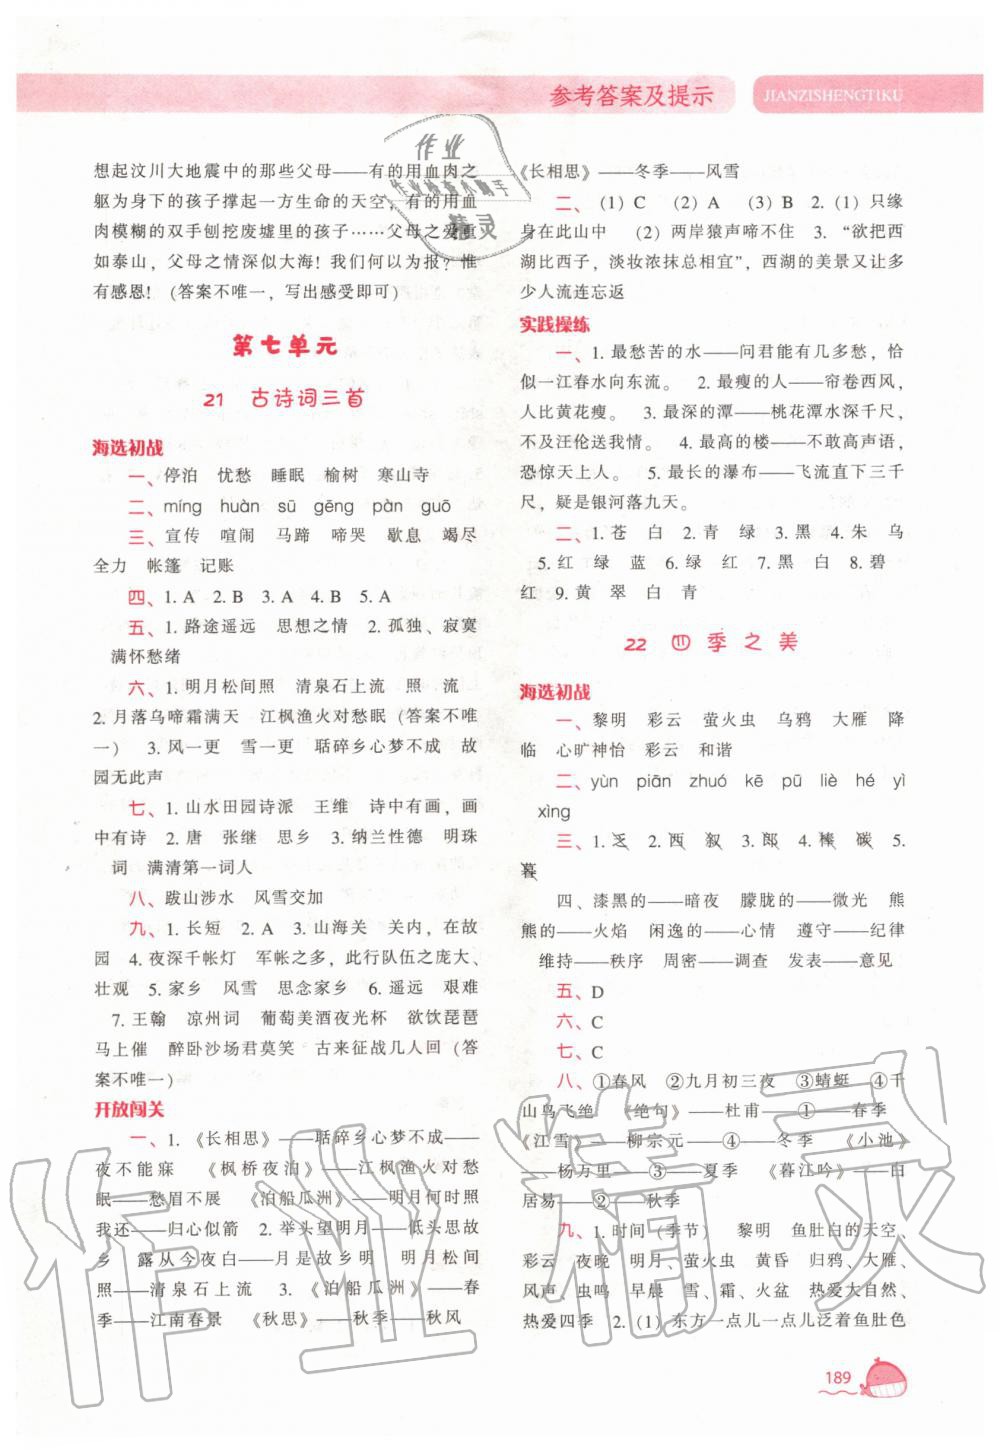 参考答案及提示
JIANZISHENGTIKU
想起汶川大地震中的那些父母——有的用血肉之
躯为身下的孩子撑起一方生命的天空,有的用血
肉模糊的双手刨挖废墟里的孩子……父母之爱重
如泰山,父母之情深似大海!我们何以为报?惟
有感恩! (答案不唯一,写出感受即可)
第七单元
21 古诗词三首
海选初战
一、停泊 忧愁 睡眠 榆树 寒山寺
二、míng huàn sū gēng pàn guō
三、宣传 喧闹 马蹄 啼哭 歇息 竭尽
全力 帐篷 记账
四、1. A 2. B 3. A 4. B 5. A
五、1. 路途遥远 思想之情 2. 孤独、寂寞
满怀愁绪
六、1. 明月松间照 清泉石上流 照 流
2. 月落乌啼霜满天 江枫渔火对愁眠(答案不唯
一) 3. 风一更 雪一更 聒碎乡心梦不成 故
园无此声
七、1. 山水田园诗派 王维 诗中有画,画
中有诗 2. 唐 张继 思乡 3. 纳兰性德 明珠
词 满清第一词人
八、跋山涉水 风雪交加
九、1. 长短 2. A 3. 山海关 关内,在故
园 4. 夜深千帐灯 军帐之多,此行队伍之庞大、
壮观 5. 家乡 风雪 思念家乡 6. 遥远 艰难
7. 王翰 凉州词 葡萄美酒夜光杯 欲饮琵琶
马上催 醉卧沙场君莫笑 古来征战几人回(答
案不唯一)
开放闯关
一、1. 《长相思》——聒碎乡心梦不成——
夜不能寐 《枫桥夜泊》——江枫渔火对愁
眠——愁眉不展 《泊船瓜洲》——明月何时照
我还——归心似箭 2. 举头望明月——低头思故
乡 露从今夜白——月是故乡明 明月松间
照——清泉石上流 3. 《泊船瓜洲》——春
季——江南春景 《秋思》——秋季——秋风
《长相思》——冬季——风雪
二、(1) C (2) A (3) B 2. (1) 只缘
身在此山中 (2) 两岸猿声啼不住 3. “欲把西
湖比西子,淡妆浓抹总相宜”,西湖的美景又让多
少人流连忘返
实践操练
一、1. 最愁苦的水——问君能有几多愁,恰
似一江春水向东流。 2. 最瘦的人——帘卷西风,
人比黄花瘦。 3. 最深的潭——桃花潭水深千尺,
不及汪伦送我情。 4. 最高的楼——不敢高声语,
恐惊天上人。 5. 最长的瀑布——飞流直下三千
尺,疑是银河落九天。
二、1. 苍 白 2. 青 绿 3. 黑 4. 朱 乌
5. 红 绿 蓝 6. 绿 红 7. 黑 白 8. 碧
红 9. 黄 翠 白 青
22 四季之美
海选初战
一、黎明 彩云 萤火虫 乌鸦 大雁 降
临 心旷神怡 彩云 和谐
二、yùn piān zhuó kē pū liè hé yì
xìng
三、1. 乏 2. 西 叙 3. 郎 4. 榛 碳 5.
暮
四、漆黑的——暗夜 朦胧的——微光 熊
熊的——火焰 闲逸的——心情 遵守——纪律
维持——秩序 周密——调查 发表——意见
五、D
六、C
七、C
八、①春风 ②九月初三夜 ③蜻蜓 ④千
山鸟飞绝 《绝句》——杜甫——①——春季
《江雪》——柳宗元——④——冬季 《小池》
——杨万里——③——夏季 《暮江吟》——白
居易——②——秋季
九、1. 时间(季节) 黎明 鱼肚白的天空、
彩云 夜晚 明月、萤火虫 黄昏 归鸦、大雁、
风声、虫鸣 早晨 雪、霜、火盆 热爱大自然、
热爱四季 2. (1) 东方一点儿一点儿泛着鱼肚色
189
作业精灵